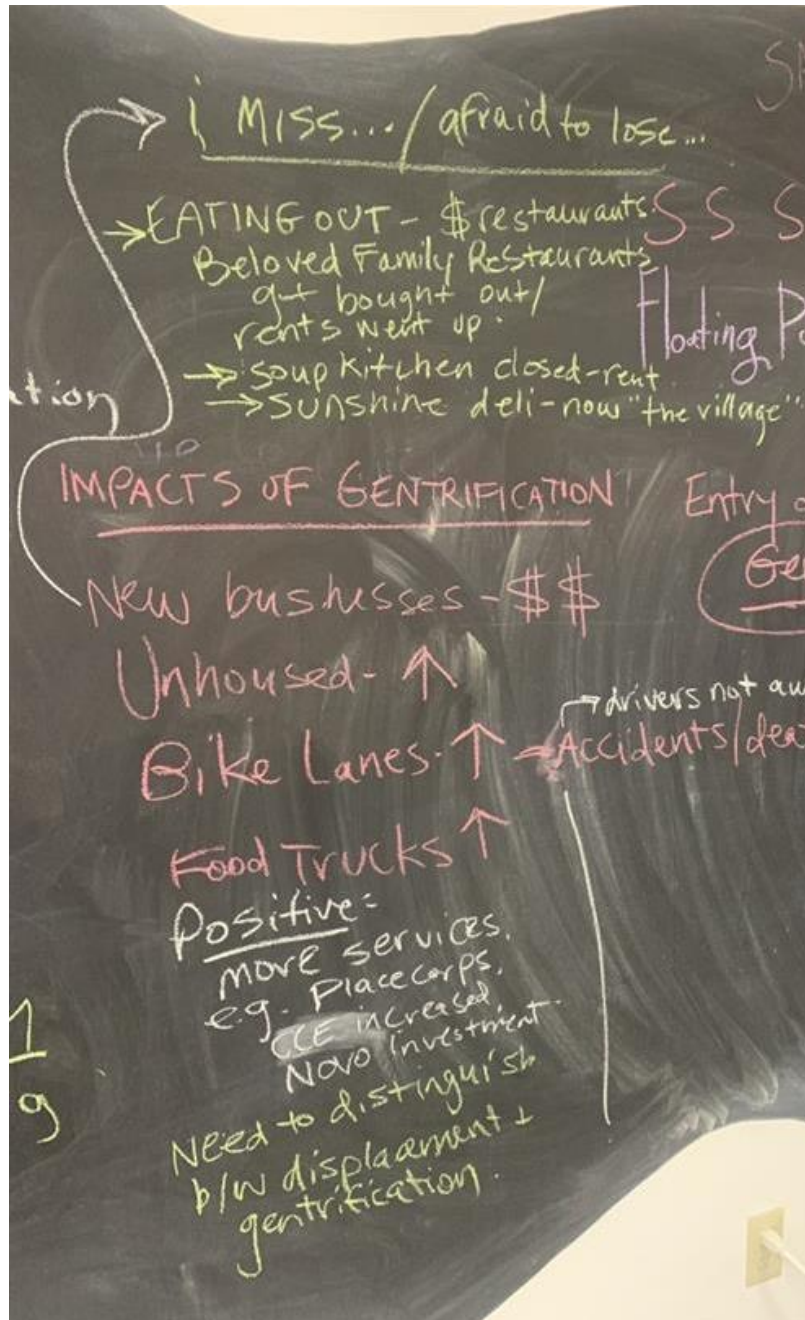 i MISS.../afraid to lose...
→EATING OUT - $ restaurants.
Beloved Family Restaurants
got bought out/
rents went up.
→ soup kitchen closed-rent
→ SUNSHINE deli-now "the village"
tion
IMPACTS OF GENTRIFICATION
New businesses - $$
Unhoused - ↑
Bike Lanes - ↑ = Accidents/dea
→drivers not aw
Food Trucks ↑
Positive:
more services.
e.g. Placecorps,
CCE increased,
Novo investment.
Need to distinguish
b/w displacement +
gentrification.
SS S
Floating Po
Entry
Ge
1
9